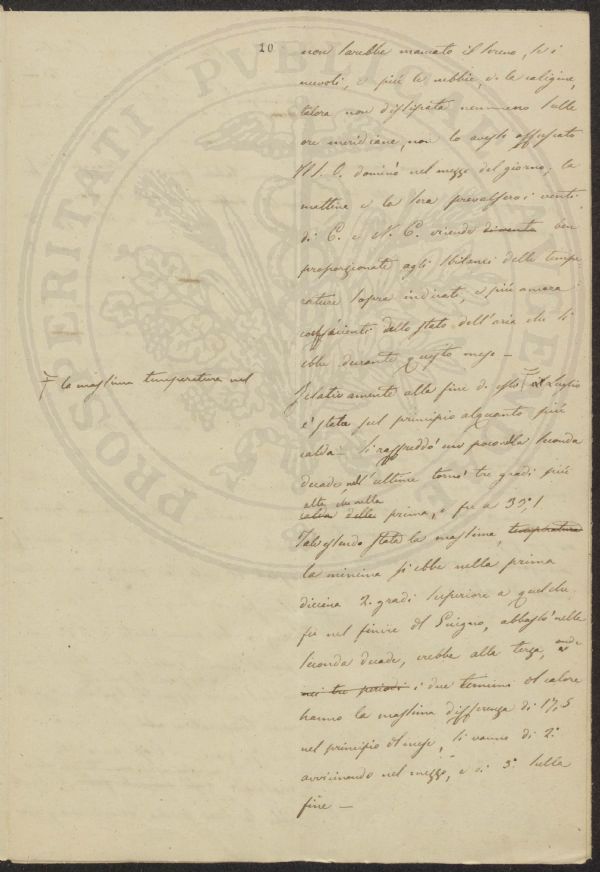 10
non sarebbe mancato il sereno, se i
nuvoli, e più le nebbie, e la caligine,
talora non dissipata nemmeno sulle
ore meridiane, non lo avesse offuscato
N. O. dominò nel mezzo del giorno; la
mattina e la sera prevalsero i venti
di E. e N. E. essendo ben
proporzionate agli sbilanci delle tempe-
rature sopra indicati, e più ancora
coefficienti dello stato dell'aria che si
ebbe durante questo mese —
F la massima temperatura nel
Relativamente alla fine di esso F il luglio
è stata sul principio alquanto più
calda — Si raffreddò un poco nella seconda
decade, nell'ultima tornò tre gradi più
alta che nella
calda della prima, e fu a 33°,1
Tale essendo stata la massima, temperatura
la minima si ebbe nella prima
diecina 2. gradi superiore a quel che
fu nel finire di Giugno, abbassò nella
seconda decade, crebbe alla terza, onde
nei tre periodi i due termini di calore
hanno la massima differenza di 17,5
nel principio di mese, si vanno di 2°
avvicinando nel mezzo, e di 3° sulla
fine —
PROSPERITATI PVBLICAE